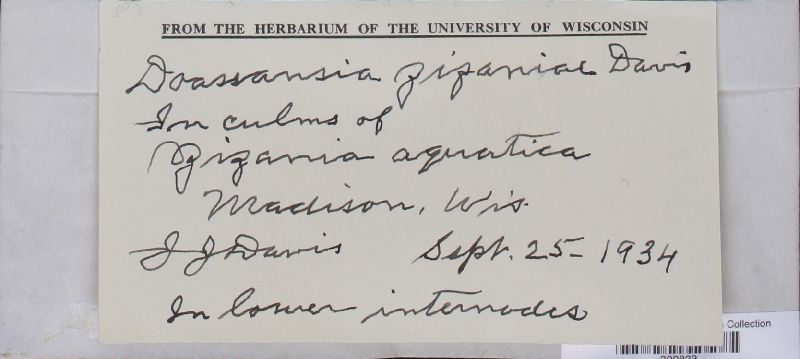 FROM THE HERBARIUM OF THE UNIVERSITY OF WISCONSIN
Doassansia zizaniae Davis
In culms of
Zizania aquatica
Madison, Wis.
J J Davis Sept. 25 - 1934
In lower internodes
Collection